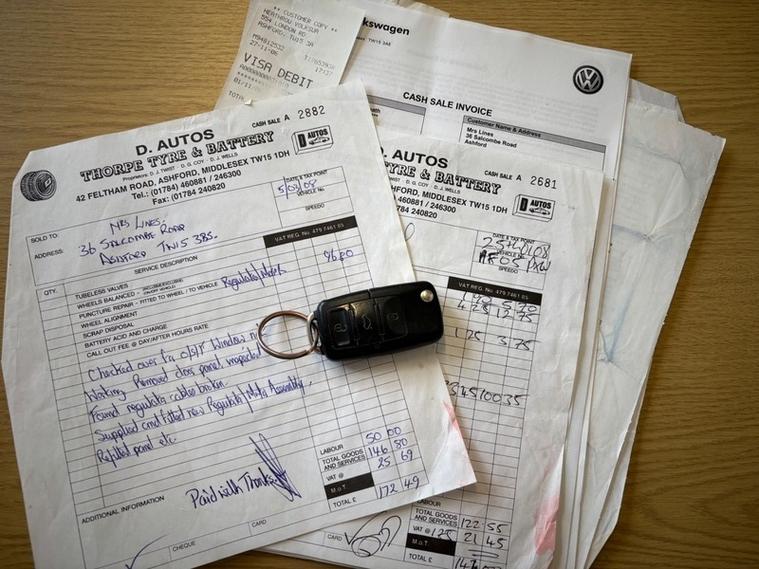 ** CUSTOMER COPY **
554 LONDON RD
ASHFORD,
TW15 3A
M94812532
27-11-06
17:37
VISA DEBIT
01/11
TOTAL
kswagen
TW15 3AE
CASH SALE INVOICE
Customer Name & Address
Mrs Lines
36 Salcombe Road
Ashford
CASH SALE A 2882
D. AUTOS
THORPE TYRE & BATTERY
Proprietors: D.J. TWIST · D.G. COY · D.J. WELLS
42 FELTHAM ROAD, ASHFORD, MIDDLESEX TW15 1DH
Tel.: (01784) 460881 / 246300
Fax: (01784) 240820
D. AUTOS
DATE & TAX POINT
VEHICLE No.
SPEEDO
SOLD TO:
ADDRESS:
36 Salcombe Road
Ashford TW15 3BS.
VAT REG. No. 479 7461 85
QTY.
SERVICE DESCRIPTION
TUBELESS VALVES
WHEELS BALANCED -
PUNCTURE REPAIR - FITTED TO WHEEL / TO VEHICLE
WHEEL ALIGNMENT
SCRAP DISPOSAL
BATTERY ACID AND CHARGE
CALL OUT FEE @ DAY/AFTER HOURS RATE
Checked over for o/s/f window
Working Removed door panel inspected
Found regulator cables broken.
Supplied and fitted new Regulator/Motor Assembly.
Refitted panel etc.
Paid with Thanks
LABOUR 50 00
TOTAL GOODS AND SERVICES 146 80
VAT @ 25 69
M.o.T.
TOTAL £ 172 49
ADDITIONAL INFORMATION
CHEQUE
CARD
CASH SALE A 2681
D. AUTOS
RE & BATTERY
D. AUTOS
TWIST · D.G. COY · D.J. WELLS
ASHFORD, MIDDLESEX TW15 1DH
460881 / 246300
01784) 240820
DATE & TAX POINT
VEHICLE No.
SPEEDO
VAT REG. No. 479 7461 85
4.25 12 75
1.25 3.75
LABOUR
TOTAL GOODS AND SERVICES 122 55
VAT @ 21 45
M.o.T.
TOTAL £
CARD